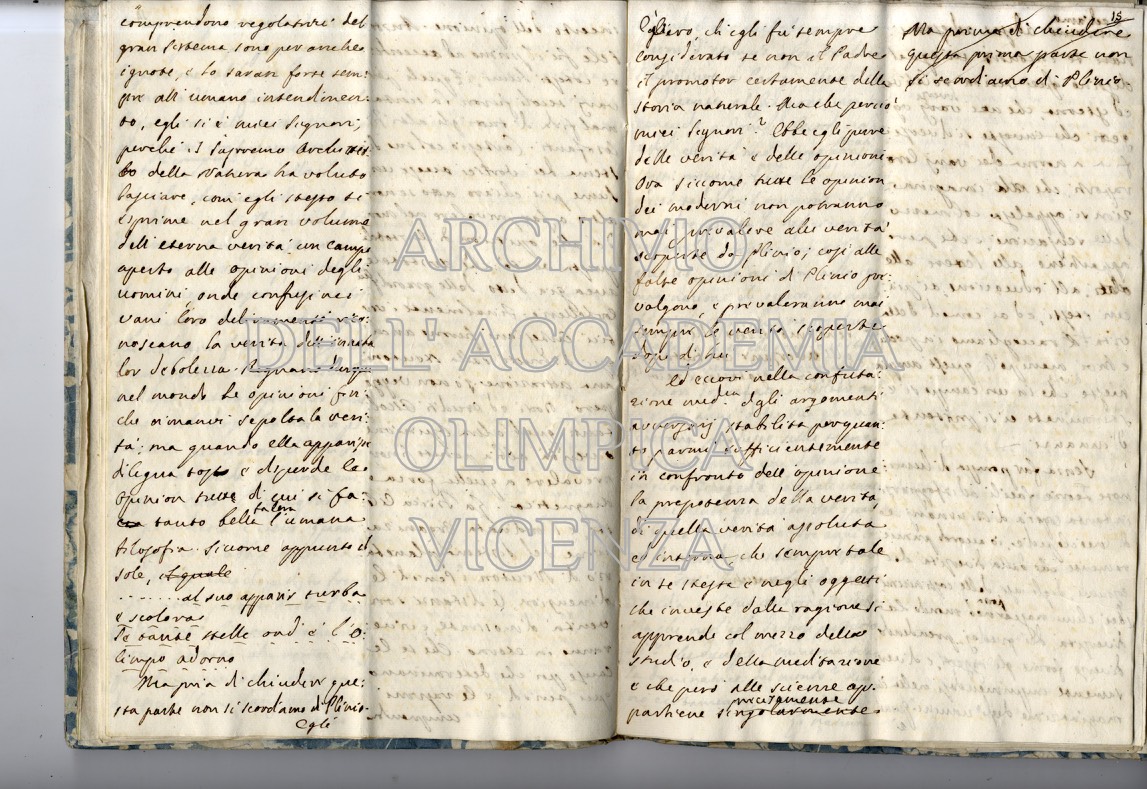 comprendono regolatrici del
gran sistema sono per anche
ignote, e lo saran forse sem:
pre all'umano intendimen:
to, egli si è miei Signori,
perchè il supremo Architet:
to della Natura ha voluto
lasciare, com'egli stesso si
esprime nel gran volume
dell'eterna verità un campo
aperto alle opinioni degli
uomini, onde confusi nei
vani loro deliramenti rico:
noscano la verità dell'innata
lor debolezza. Regnan dunque
nel mondo le opinioni fin:
che rimanvi sepolta la veri:
tà; ma quando ella apparisce
dilegua tosto e disperde le
opinion tutte di cui si fa:
tanto bella talora l'umana
filosofia. Siccome appunto il
sole, il quale
........ al suo apparir turba
e scolora
Te tante stelle ond'è l'O:
limpo adorno
Ma pria di chiuder que:
sta parte non si scordiamo di Plinio.
Egli
Egli è vero, ch'egli fu sempre
considerato se non il Padre
il promotor certamente della
storia naturale. Ma che perciò
miei Signori? Ebbe egli pure
delle verità e delle opinioni
Ora siccome tutte le opinion
dei moderni non potranno
mai prevalere alle verità
scoperte da Plinio; così alle
false opinioni di Plinio pre
valgono, e prevaleranno mai
sempre le verità scoperte
dopo di lui
Ed eccovi nella confuta:
zione degli argomenti
avversarj stabilita per quan:
to parmi sufficientemente
in confronto dell'opinione
la prepotenza della verità,
di quella verità assoluta
ed interna, che sempre tale
in se stessa e negli oggetti
che investe dalla ragione si
apprende col mezzo dello
studio, e della meditazione
e che però alle scienze ap:
precisamente
partiene singolarmente
18
Ma prima di chiudere
questa prima parte non
si scordiamo di Plinio
ARCHIVIO
DELL'ACCADEMIA
OLIMPICA
VICENZA